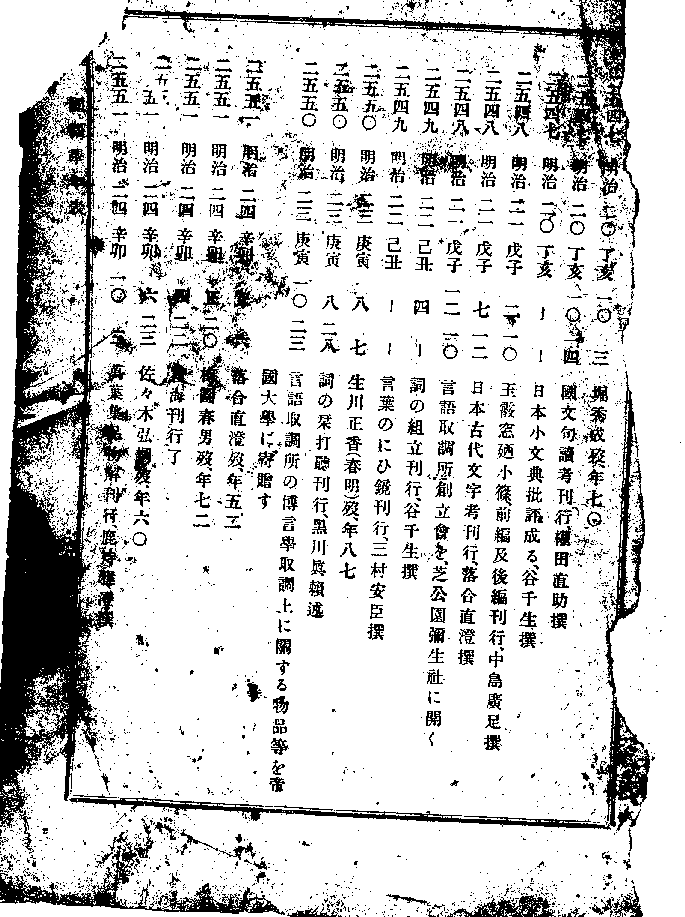 二五四七 明治 二〇 丁亥 一〇 三 堀秀成歿、年七〇
明治 二〇 丁亥 一〇 一四 國文句讀考刊行、權田直助撰
二五四七 明治 二〇 丁亥 ー ー 日本小文典批評成る、谷千生撰
二五四八 明治 二一 戊子 一〇 玉霰窓廼小篠、前編及後編刊行、中島廣足撰
二五四八 明治 二一 戊子 七 一二 日本古代文字考刊行、落合直澄撰
二五四八 明治 二一 戊子 一二 二〇 言語取調所創立會を、芝公園彌生社に開く
二五四九 明治 二二 己丑 四 ー 詞の組立刊行、谷千生撰
二五四九 明治 二二 己丑 ー ー 言葉のにひ鏡刊行、三村安臣撰
二五五〇 明治 二三 庚寅 八 七 生川正香(春明)歿、年八七
二五五〇 明治 二三 庚寅 八 二八 詞の栞打聽刊行、黑川眞賴述
二五五〇 明治 二三 庚寅 一〇 二三 言語取調所の博言學取調上に關する物品等を帝
國大學に寄贈す
二五五一 明治 二四 辛卯 落合直澄歿、年五二
二五五一 明治 二四 辛卯 二〇 春男歿、年七二
二五五一 明治 二四 辛卯 四 二二 海刊行了
明治 二四 辛卯 六 二三 佐々木弘綱歿、年六〇
二五五一 明治 二四 辛卯 一〇 萬葉集